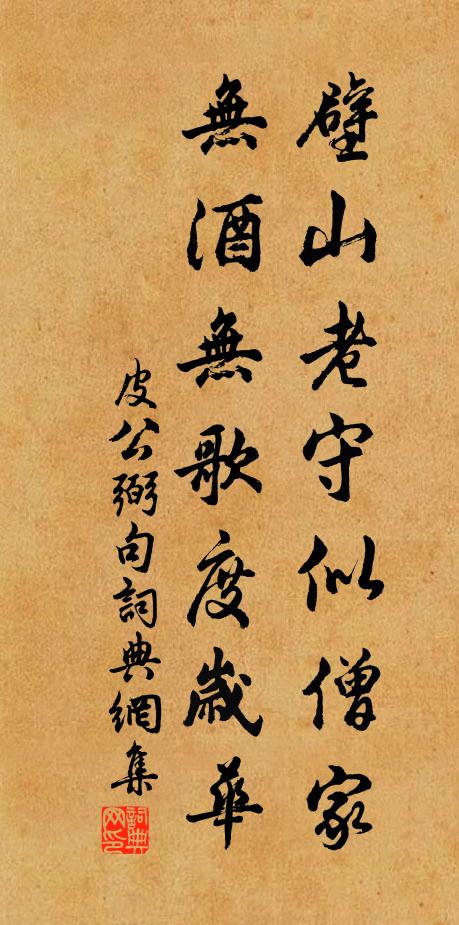 壁山老守似僧家
無酒無歌度歲華
皮公弼句詞典網集
詞典網印